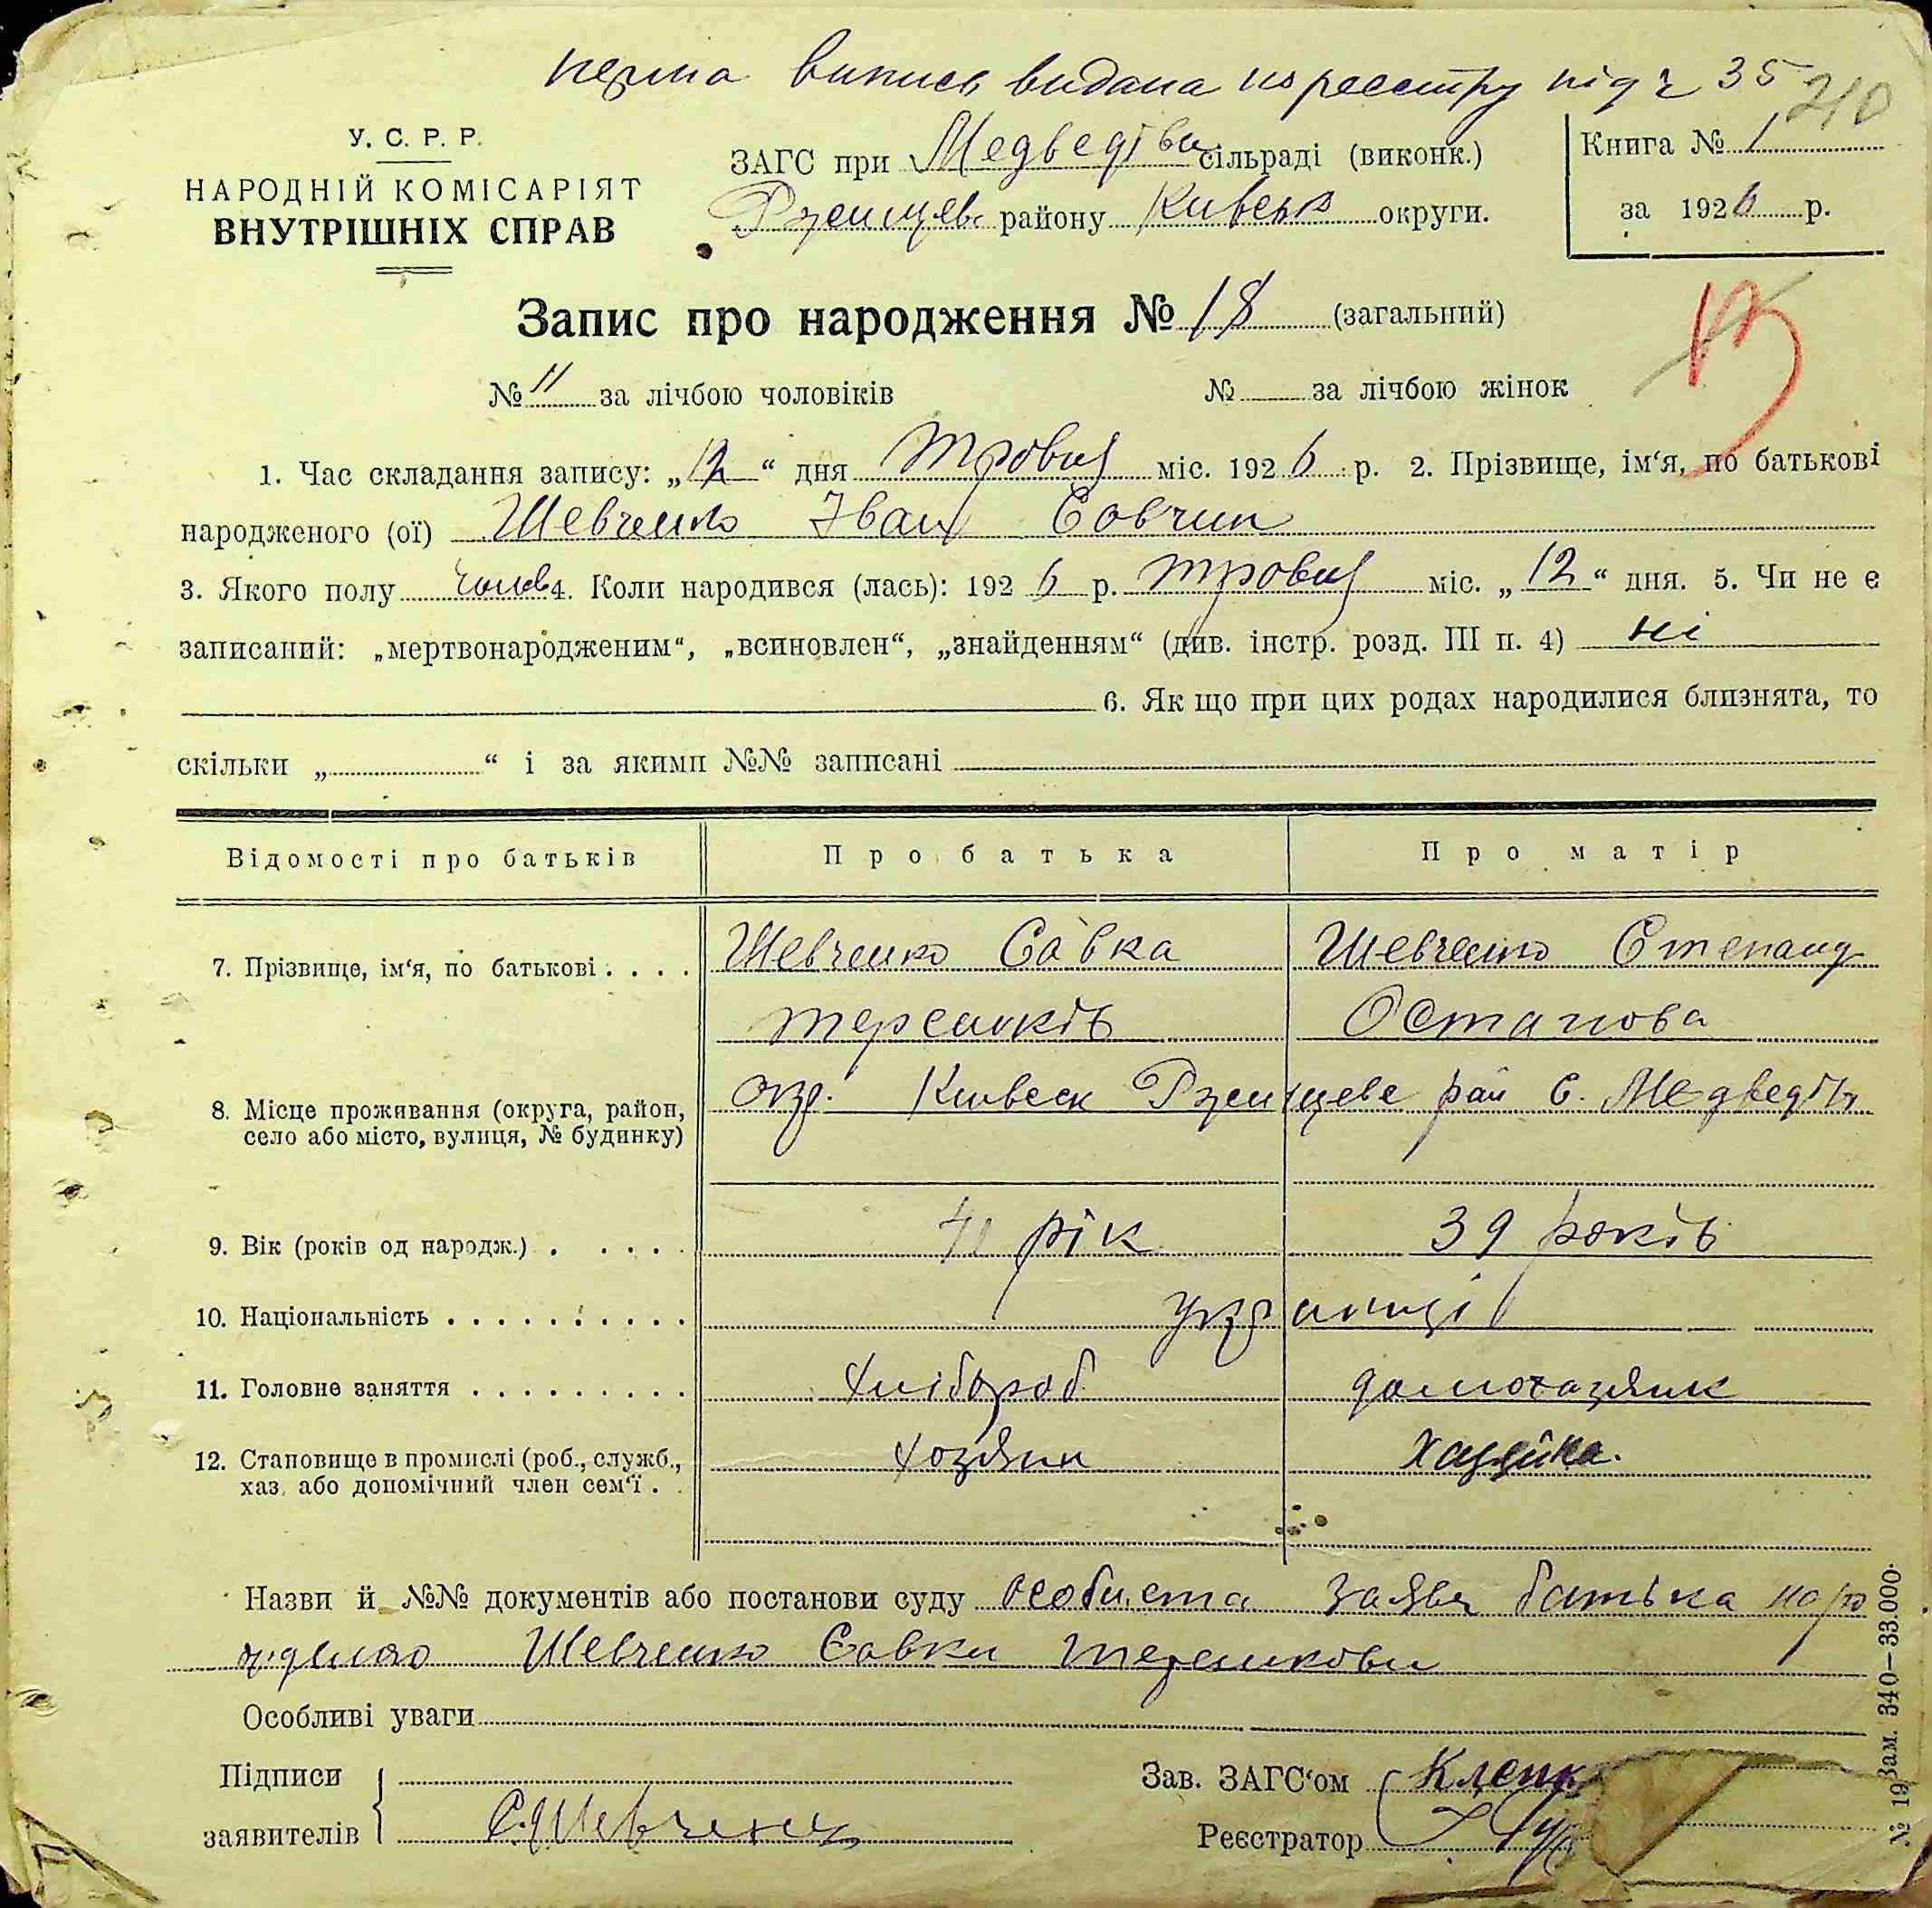 перша випись видана по реестру під ч 35
210
У. С. Р. Р.
НАРОДНІЙ КОМІСАРІЯТ
ВНУТРІШНІХ СПРАВ
ЗАГС при Медведівськ сільраді (виконк.)
Ржищевс району Київськ округи.
Книга № 1
за 1926 р.
Запис про народження № 18 (загальний)
№ 11 за лічбою чоловіків № за лічбою жінок
1. Час складання запису: „12“ дня Травня міс. 1926 р. 2. Прізвище, ім‘я, по батькові
народженого (ої) Шевченко Іван Савчин
3. Якого полу чолов 4. Коли народився (лась): 1926 р. травня міс. „12“ дня. 5. Чи не є
записаний: „мертвонародженим“, „всиновлен“, „знайденням“ (див. інстр. розд. III п. 4) ні
6. Як що при цих родах народилися близнята, то
скільки „ “ і за якими №№ записані
Відомості про батьків Про батька Про матір
7. Прізвище, ім‘я, по батькові . . . . Шевченко Савка Шевченко Степанида
терешків Остапова
8. Місце проживання (округа, район,
село або місто, вулиця, № будинку)
окр. Київськ Ржищевс рай с.
9. Вік (років од народж.) . . . . . 41 рік 39 років
10. Національність . . . . . . . . . . українці
11. Головне заняття . . . . . . . . . хлібороб домохазяик
12. Становище в промислі (роб., служб.,
хаз. або допомічний член сем‘ї . .
хозяин хазяйка.
Назви й №№ документів або постанови суду особиста заява батька наро
жденого Шевченко Савки терешкови
Особливі уваги
Підписи
заявителів С. Шевченко
Зав. ЗАГС‘ом
Реєстратор
№ 19 Зам. 340–33.000.